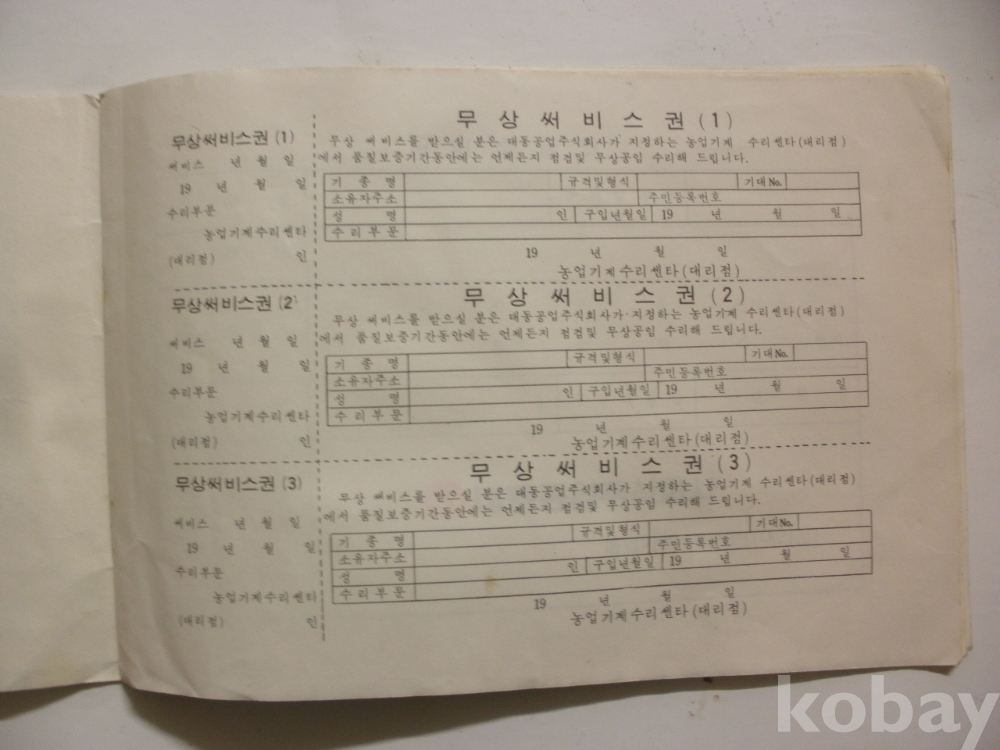 무상써비스권 (1)
써비스 년 월 일
19 년 월 일
수리부문
농업기계수리쎈타
(대리점) 인
무상써비스권 (1)
무상 써비스를 받으실 분은 대동공업주식회사가 지정하는 농업기계 수리쎈타(대리점)
에서 품질보증기간동안에는 언제든지 점검및 무상공임 수리해 드립니다.
기종명 규격및형식 기대No.
소유자주소 주민등록번호
성명 인 구입년월일 19 년 월 일
수리부문
19 년 월 일
농업기계수리쎈타(대리점)
무상써비스권 (2)
써비스 년 월 일
19 년 월 일
수리부문
농업기계수리쎈타
(대리점) 인
무상써비스권 (2)
무상 써비스를 받으실 분은 대동공업주식회사가 지정하는 농업기계 수리쎈타(대리점)
에서 품질보증기간동안에는 언제든지 점검및 무상공임 수리해 드립니다.
기종명 규격및형식 기대No.
소유자주소 주민등록번호
성명 인 구입년월일 19 년 월 일
수리부문
19 년 월 일
농업기계수리쎈타(대리점)
무상써비스권 (3)
써비스 년 월 일
19 년 월 일
수리부문
농업기계수리쎈타
(대리점) 인
무상써비스권 (3)
무상 써비스를 받으실 분은 대동공업주식회사가 지정하는 농업기계 수리쎈타(대리점)
에서 품질보증기간동안에는 언제든지 점검및 무상공임 수리해 드립니다.
기종명 규격및형식 기대No.
소유자주소 주민등록번호
성명 인 구입년월일 19 년 월 일
수리부문
19 년 월 일
농업기계수리쎈타(대리점)
kobay